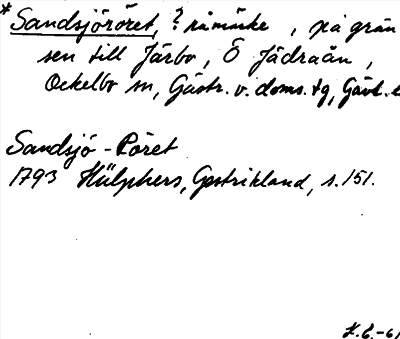 * Sandsjöröret, ? råmärke, på grän
sen till Järbo, Ö Jädraån,
Ockelbo sn, Gästr. v. doms. tg, Gävl.
Sandsjö-Röret
1793 Hülphers, Gestrikland, s. 151.